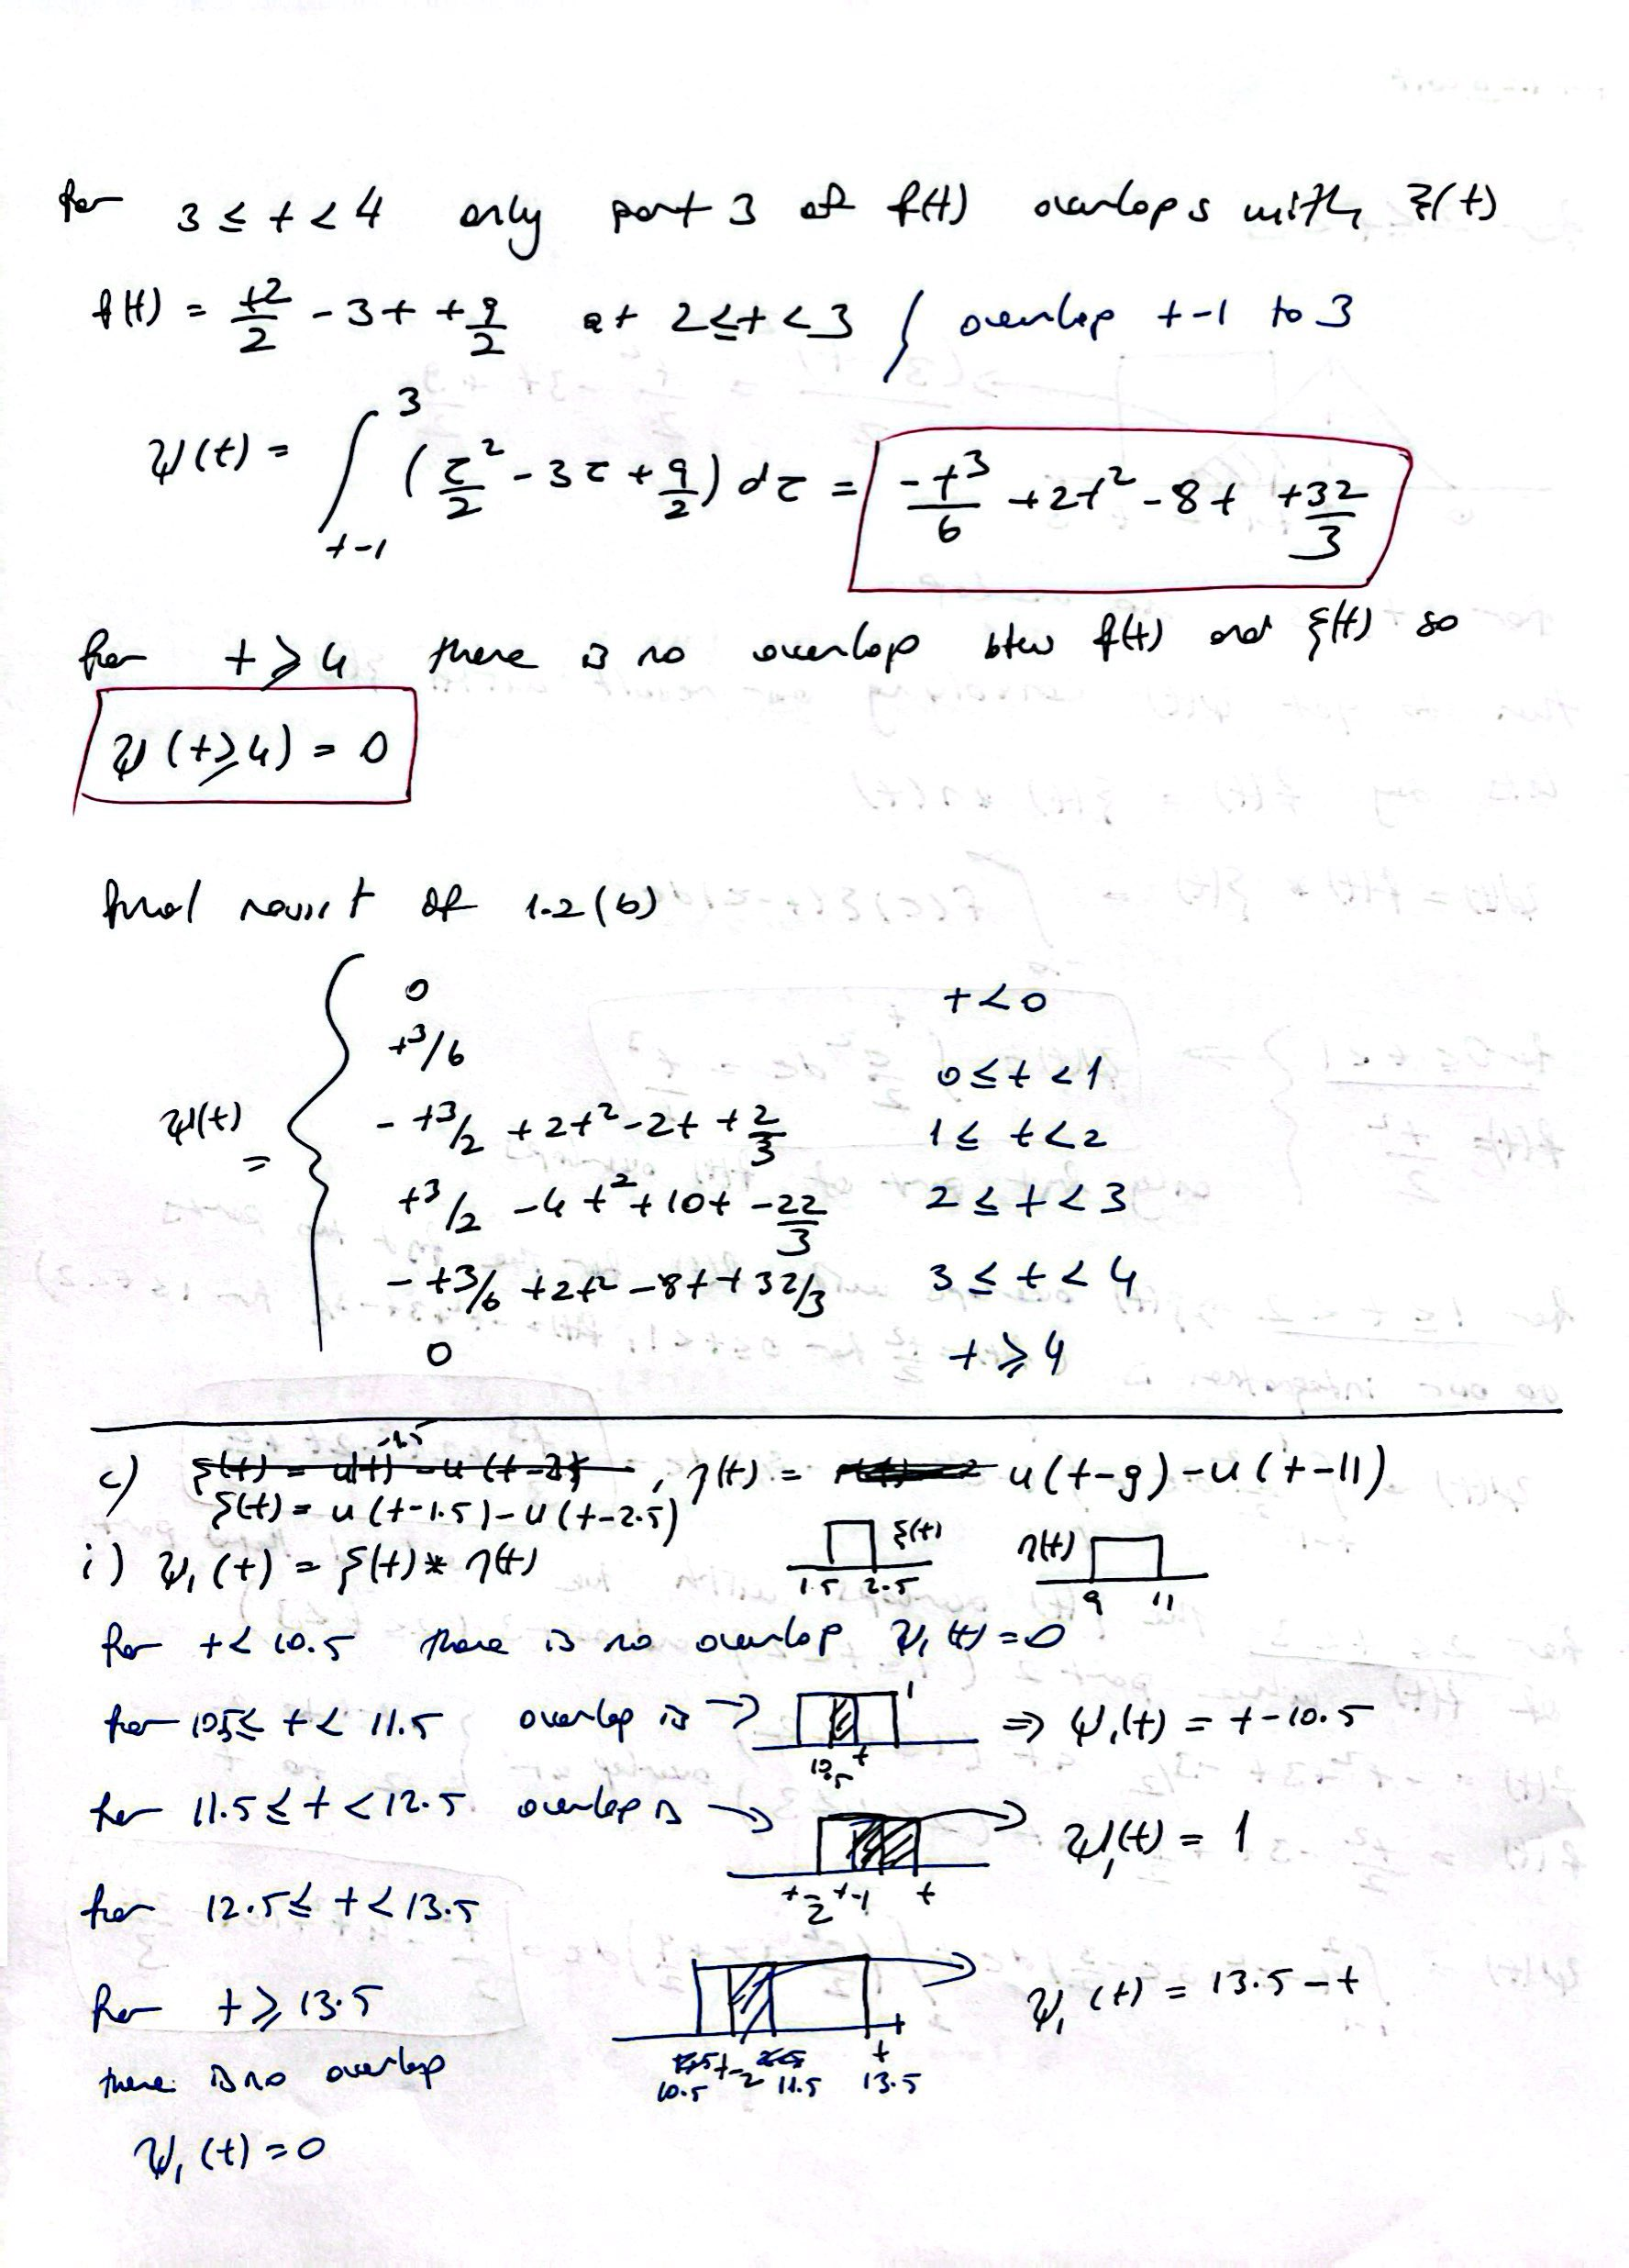 for 3 ≤ t < 4 only part 3 of f(t) overlaps with ξ(t)
f(t) = t²/2 - 3t + 9/2 at 2 ≤ t < 3 } overlap t-1 to 3
ψ(t) = ∫_{t-1}^{3} (τ²/2 - 3τ + 9/2) dτ = -t³/6 + 2t² - 8t + 32/3
for t ≥ 4 there is no overlap btw f(t) and ξ(t) so
ψ(t ≥ 4) = 0
final result of 1.2(b)
0 t < 0
t³/6 0 ≤ t < 1
ψ(t) = { -t³/2 + 2t² - 2t + 2/3 1 ≤ t < 2
t³/2 - 4t² + 10t - 22/3 2 ≤ t < 3
-t³/6 + 2t² - 8t + 32/3 3 ≤ t < 4
0 t ≥ 4
c) , η(t) = u(t-9) - u(t-11)
ξ(t) = u(t-1.5) - u(t-2.5)
i) ψ₁(t) = ξ(t) * η(t) ξ(t) η(t)
1.5 2.5 9 11
for t < 10.5 there is no overlap ψ₁(t) = 0
for 10.5 ≤ t < 11.5 overlap is → 1 ⇒ ψ₁(t) = t - 10.5
10.5 t
for 11.5 ≤ t < 12.5 overlap is → ψ₁(t) = 1
t-2 t-1 t
for 12.5 ≤ t < 13.5
for t ≥ 13.5 ψ₁(t) = 13.5 - t
there is no overlap t-2 t
10.5 11.5 13.5
ψ₁(t) = 0